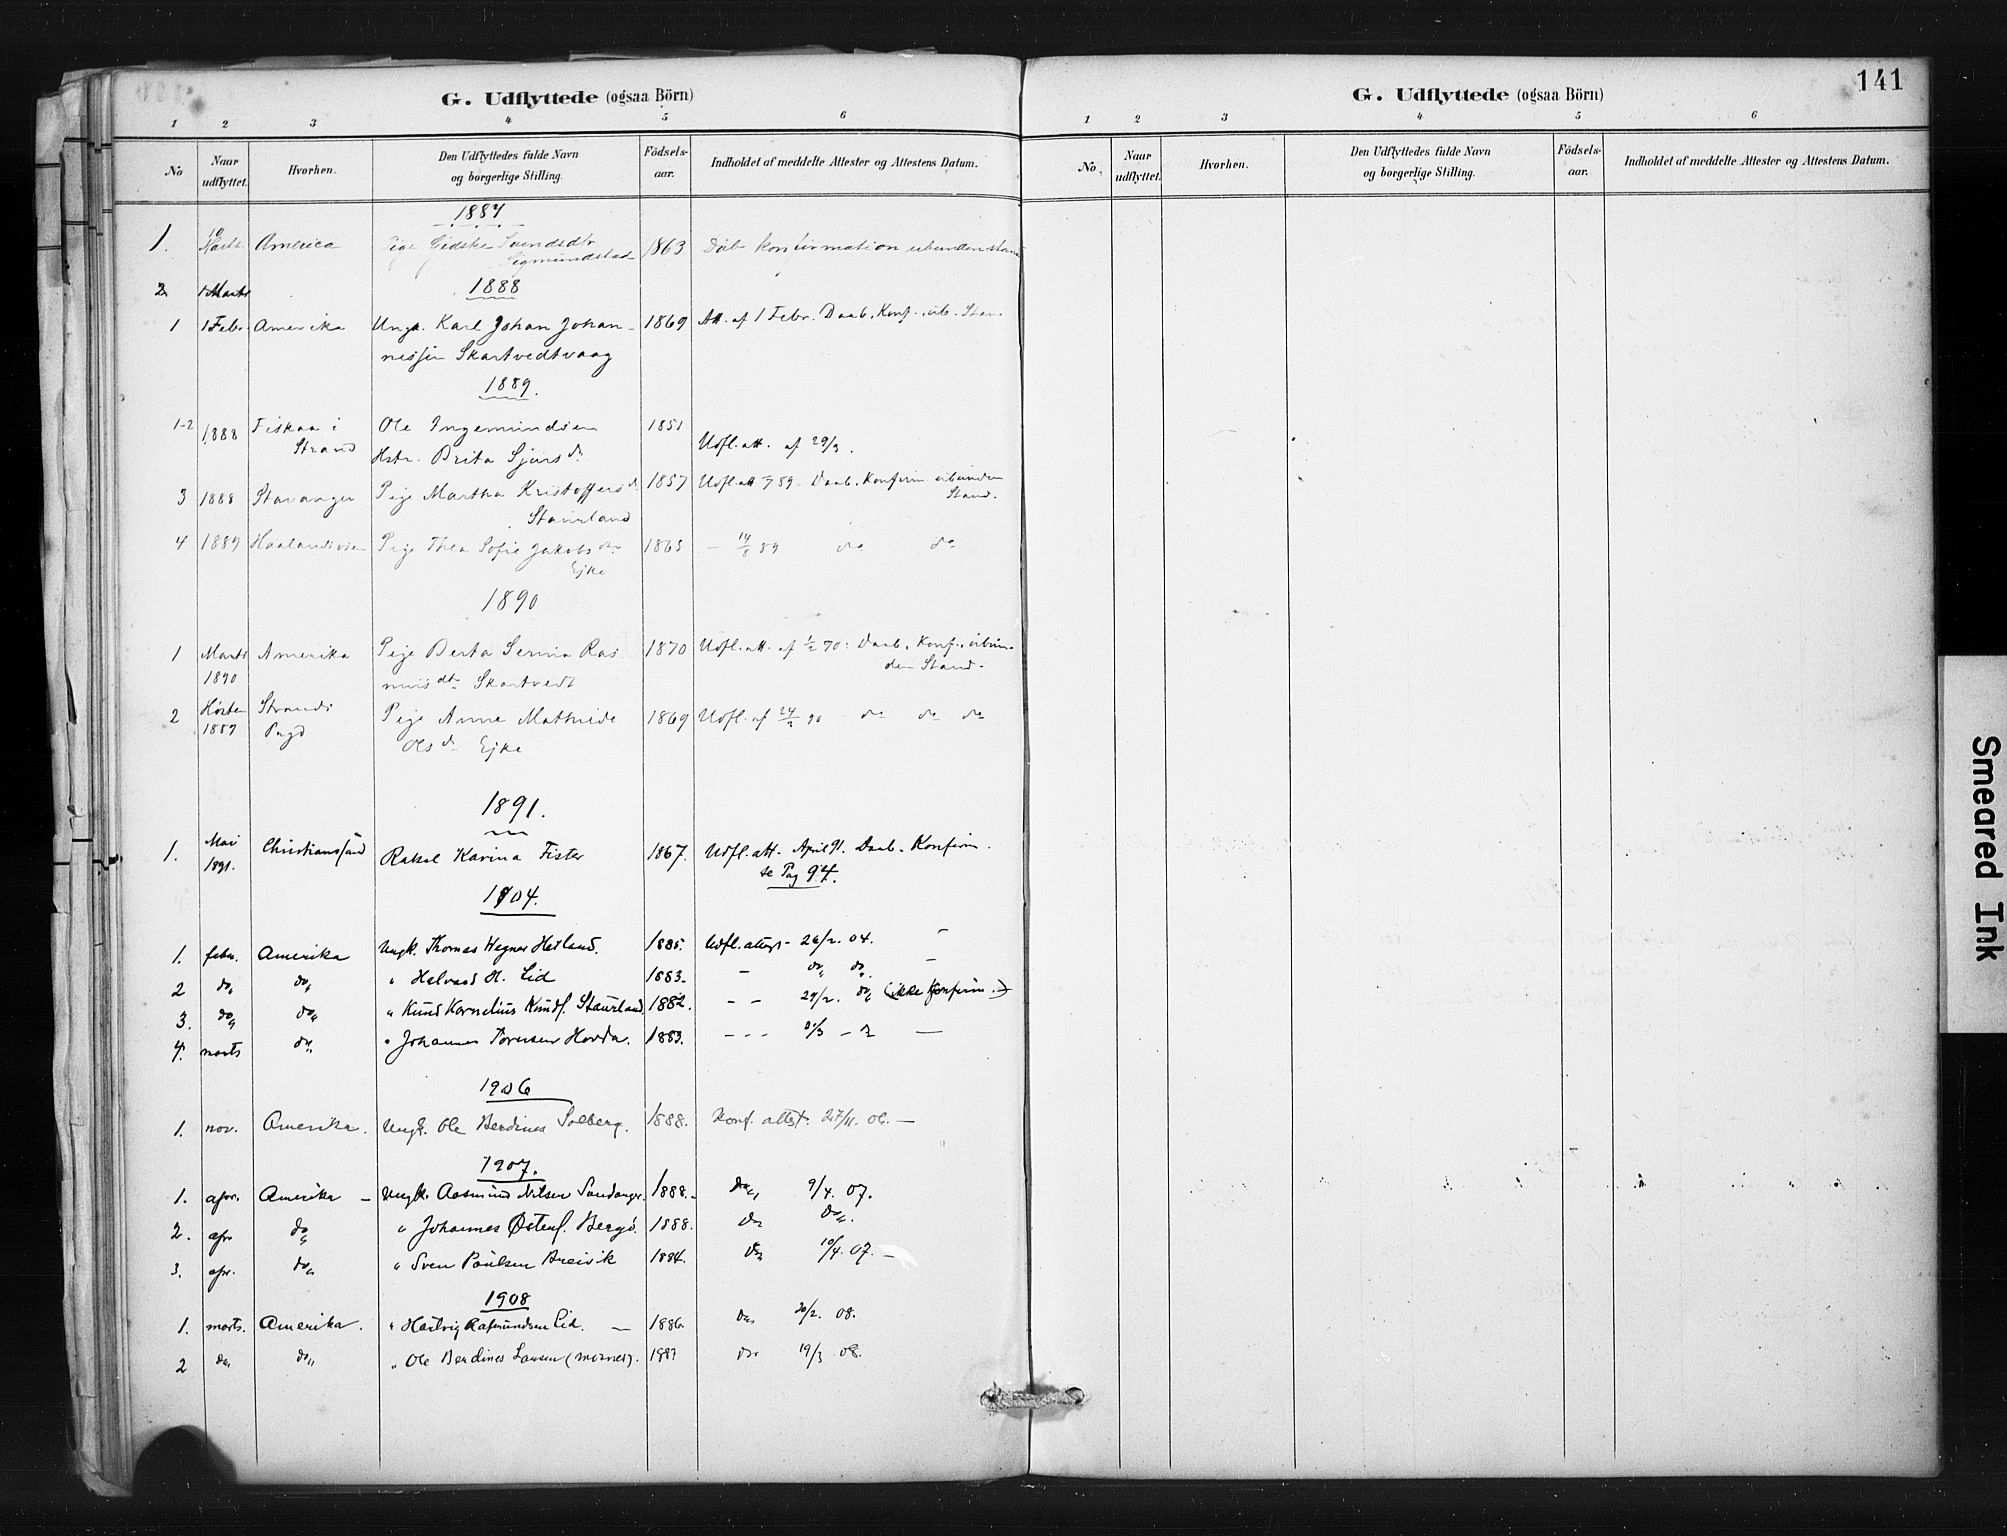 G. Udflyttede (ogsaa Börn)
1 2 3 4 5 6
No Naar udflyttet. Hvorhen. Den Udflyttedes fulde Navn og borgerlige Stilling. Födsels-aar. Indholdet af meddelte Attester og Attestens Datum.
1887
1. America Pige Gidske Svendsdtr 1863 Daab konfirmation ubunden stand
Sigmundstad
2 1 Marts 1888
1 1 Febr. Amerika Ungk. Karl Johan Johan- 1869 Att. af 1 Febr. Daab, Konf., ub. Stan.
nessen Skartvedtvaag
1889.
1-2 1888 Fiskaa i Ole Ingemundsen 1851
Strand Hstr. Brita Sjurs dr Udfl. att. af 29/3.
3 1888 Stavanger Pige Martha Kristoffers dr 1857 Udfl. att 89 Daab, Konfirm ubunden
Staurland Stand.
4 1889 Pige Thea Sofie Jakobs dtr 1865 - 14/8 89 do do
Ejke
1890
1 Marts Amerika Pige Berta Serina Ras- 1870 Udfl. att. af ½ 90: Daab, Konf., ubun-
1890 mus dtr Skartvedt den Stand.
2 Høsten Strands Pige Anna Mathilde 1869 Udfl. af 24/2 90 do do do
1889 Pgd Ols dr Ejke
1891.
1. Mai Christianssand Rakel Karina Fister 1867. Udfl. att. April 91. Daab. Konfirm.
1891. se Pag 94.
1904.
1. febr. Amerika Ungk. Thomas Wegner Hetland. 1885. Udfl. attest - 26/2. 04. -
2 do do " Halvard H. Lid 1883. - do do. -
3. do do " Knud Kornelius Knudf. Staurland 1882. - - 29/2. do (ikke Konfirm.)
4. marts do " Johannes Torensen Hovda. 1883. - - - /3 - -
1906
1. nov. Amerika. Ungk. Ole Berdines Solberg. 1888. Konf. attest. 27/11. 06. -
1907.
1. apr. Amerika - Ungk. Aasmund Nilsen Sandanger. 1888. - do 9/4. 07.
2. apr do " Johannes Østenf. Bergø. 1888. do do.
3. apr. do " Sven Paulsen Breivik 1884. do 10/4. 07. -
1908
1. marts. Amerika. " Hartvig Rasmundsen Lid. - 1886. do 20/2. 08.
2 do do " Ole Berdines Larsen (mosnes). 1887 do 19/3 08.
141
G. Udflyttede (ogsaa Börn)
1 2 3 4 5 6
No. Naar udflyttet. Hvorhen. Den Udflyttedes fulde Navn og borgerlige Stilling. Födsels-aar. Indholdet af meddelte Attester og Attestens Datum.
Smeared Ink